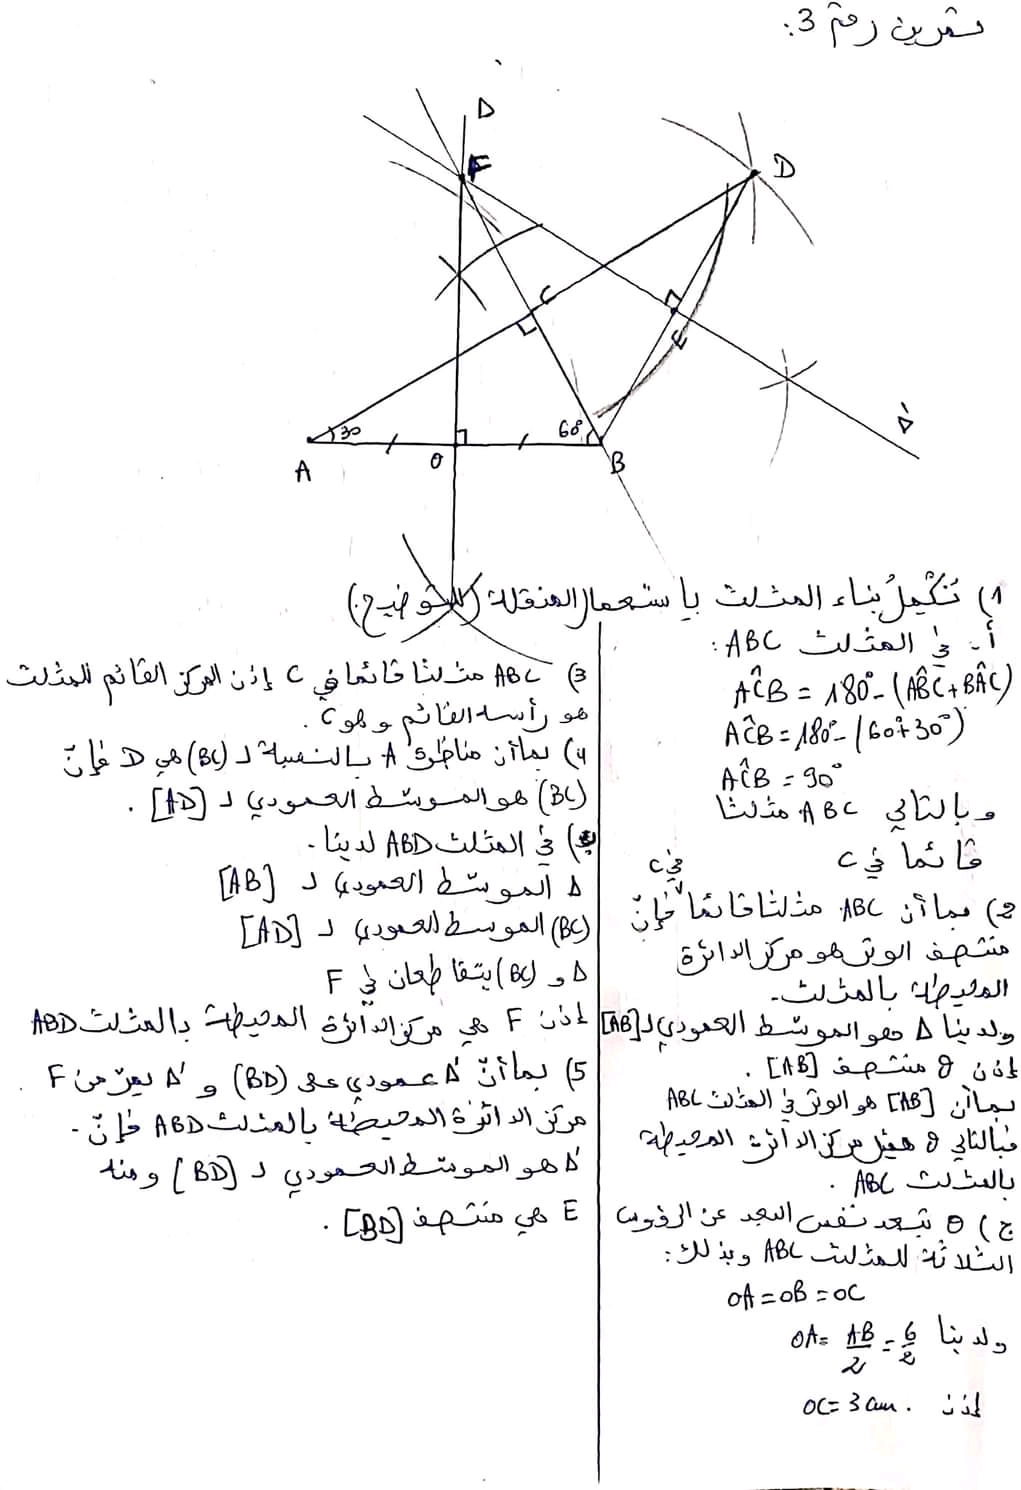 تمرين رقم 3:
Δ
F
D
C
E
30
60°
A
O
B
Δ'
1) نُكْمِلُ بناء المثلث باستعمال المنقلة (للتوضيح).
أ - في المثلث ABC:
AĈB = 180° - (AB̂C + BÂC)
AĈB = 180° - (60° + 30°)
AĈB = 90°
وبالتالي ABC مثلثا
قائما في C
2) بما أن ABC مثلثا قائما في C فإنّ
منتصف الوتر هو مركز الدائرة
المحيطة بالمثلث.
ولدينا Δ هو الموسّط العمودي لـ [AB]
إذن O منتصف [AB].
بما أن [AB] هو الوتر في المثلث ABC
فبالتالي O هي مركز الدائرة المحيطة
بالمثلث ABC.
ج) O تبعد نفس البعد عن الرؤوس
الثلاثة للمثلث ABC وبذلك:
OA = OB = OC
ولدينا OA = AB/2 = 6/2
إذن OC = 3 cm.
3) ABC مثلثا قائما في C إذن المركز القائم للمثلث
هو رأسه القائم وهو C.
4) بما أن مناظرة A بالنسبة لـ (BC) هي D فإنّ
(BC) هو الموسّط العمودي لـ [AD].
ب) في المثلث ABD لدينا.
Δ الموسّط العمودي لـ [AB]
(BC) الموسط العمودي لـ [AD]
Δ و (BC) يتقاطعان في F
إذن F هي مركز الدائرة المحيطة بالمثلث ABD
5) بما أنّ Δ' عمودي على (BD) و Δ' يمرّ من F.
مركز الدائرة المحيطة بالمثلث ABD فإنّ.
Δ' هو الموسّط العمودي لـ [BD] ومنه
E هي منتصف [BD].